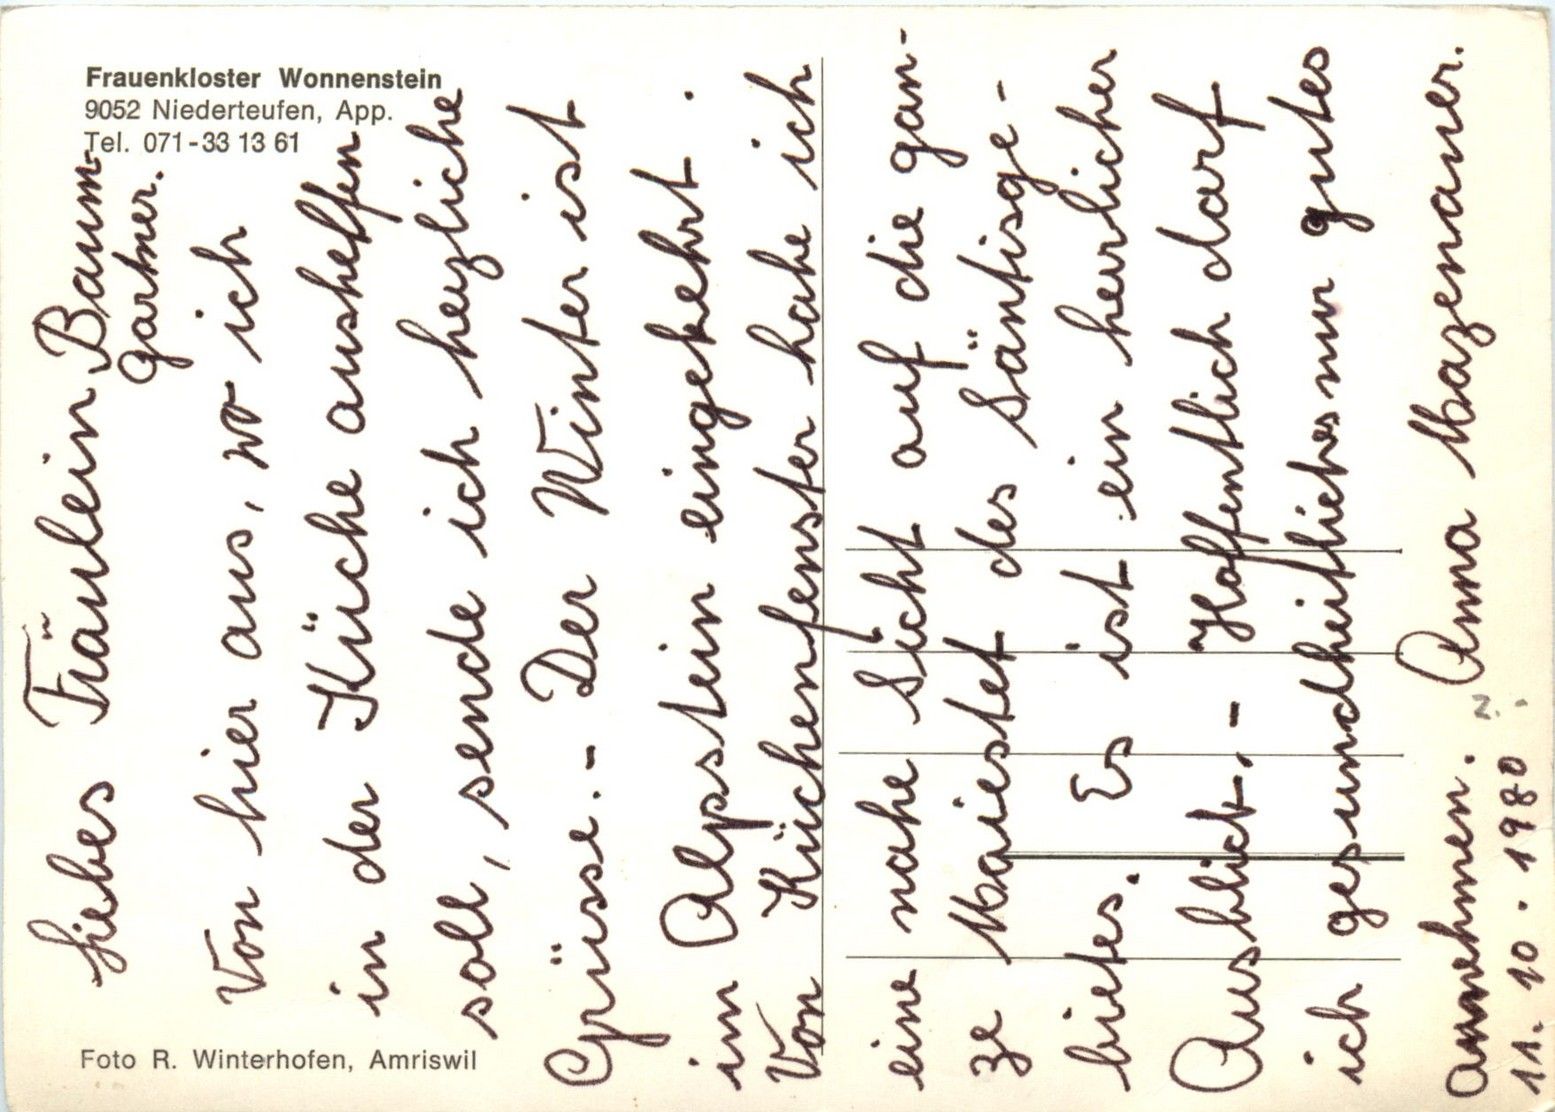 Frauenkloster Wonnenstein
9052 Niederteufen, App.
Tel. 071-33 13 61
Liebes Fräulein Baum-
gartner.
Von hier aus, wo ich
in der Küche aushelfen
soll, sende ich herzliche
Grüsse. - Der Winter ist
im Alpstein eingekehrt.
Von Küchenfenster habe ich
eine nahe Sicht auf die gan-
ze Maiestet des Säntisge-
bietes. Es ist ein herlicher
Ausblick. - Hoffentlich darf
ich gesundheitliches nur gutes
annehmen. Anna Mazenauer.
11. 10. 1980
Foto R. Winterhofen, Amriswil